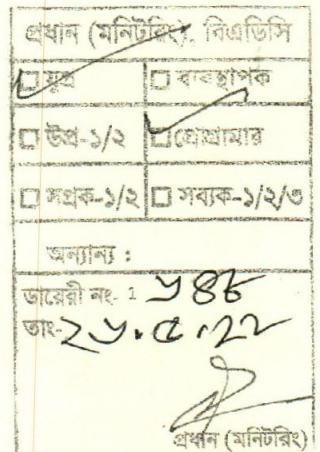 প্রধান (মনিটরিং), বিএডিসি
□ যুপ্র □ ব্যবস্থাপক
□ উপ্র-১/২ □ প্রোগ্রামার
□ সপ্রক-১/২ □ সব্যক-১/২/৩
অন্যান্য :
ডায়েরী নং- 1 ১৪৮
তাং- ২৬.৫.২২
প্রধান (মনিটরিং)